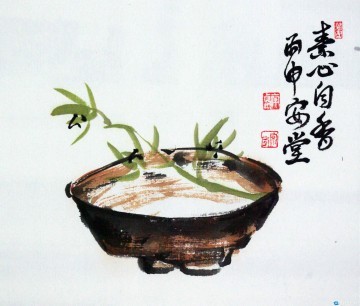 素心自香
丙申安堂